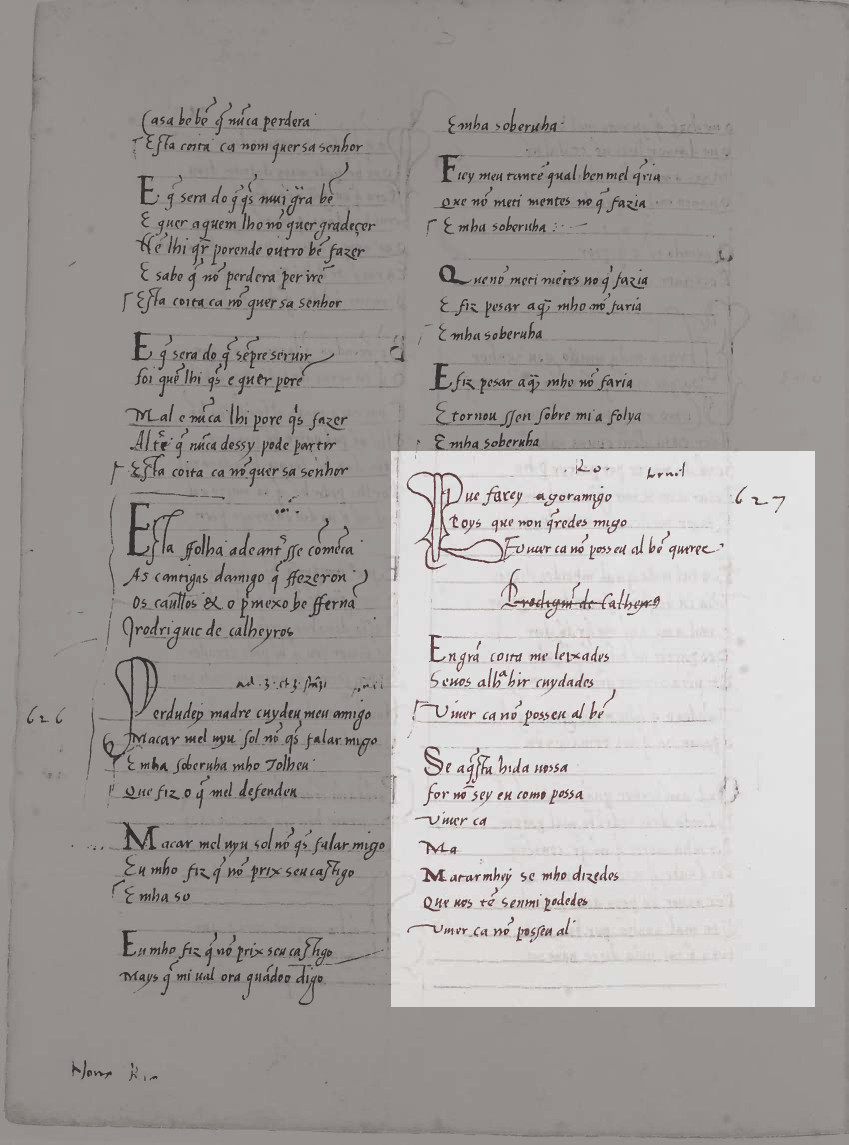 Casa be bẽ q̃ nũca perdera
Esta coita ca nom quer sa senhor
E q̃ sera do q̃ q̃s mui g̃ra bẽ
E quer aquem lho nõ quer gradeçer
Nẽ lhi q̃r porende outro bẽ fazer
E sabe q̃ nõ perdera per irẽ
Esta coita ca nõ quer sa senhor
E q̃ sera do q̃ sẽpre seruir
foi quẽ lhi q̃s e quer porẽ
Mal e nũca lhi pore q̃s fazer
q̃ nũca dessy pode partir
Esta coita ca nõ quer sa senhor
Esta ffolha adeant̃ sse comẽca
As cantigas damigo q̃ ffezeron
os caũllos & o p̃mexo he ffernã
Jrodriguic de calheyros
626
Perdudeỹ madre cuydeu meu amigo
Macar mel uyu sol nõ q̃s falar migo
E mha soberuha mho Tolheu
Que fiz o q̃ mel defenden
Macar mel uyu sol nõ q̃s falar migo
Eu mho fiz q̃ nõ prix seu castigo
E mha so
Eu mho fiz q̃ nõ prix seu castigo
Mays q̃ mi ual ora quãdoo digo
E mha soberuha
Fiey meu tantẽ qual ben mel q̃ria
Que nõ meti mentes no q̃ fazia
E mha soberuha
Que nõ meti mẽtes no q̃ fazia
E fiz pesar aq̃ mho nõ faria
E mha soberuha
E fiz pesar aq̃ mho nõ faria
E tornou ssen sobre mi a folya
E mha soberuha
Que farey agoramigo
Poys que non q̃redes migo
Viuer ca nõ posseu al bẽ querer
627
Engrã coita me leixades
Seuos alhª hir cuydades
Viuer ca nõ posseu al bẽ
Se aq̃sta hida uossa
for nõ sey eu como possa
Viuer ca
Ma
Macar mheỹ se mho dizedes
Que uos tẽ senmi podedes
Viuer ca nõ posseu al